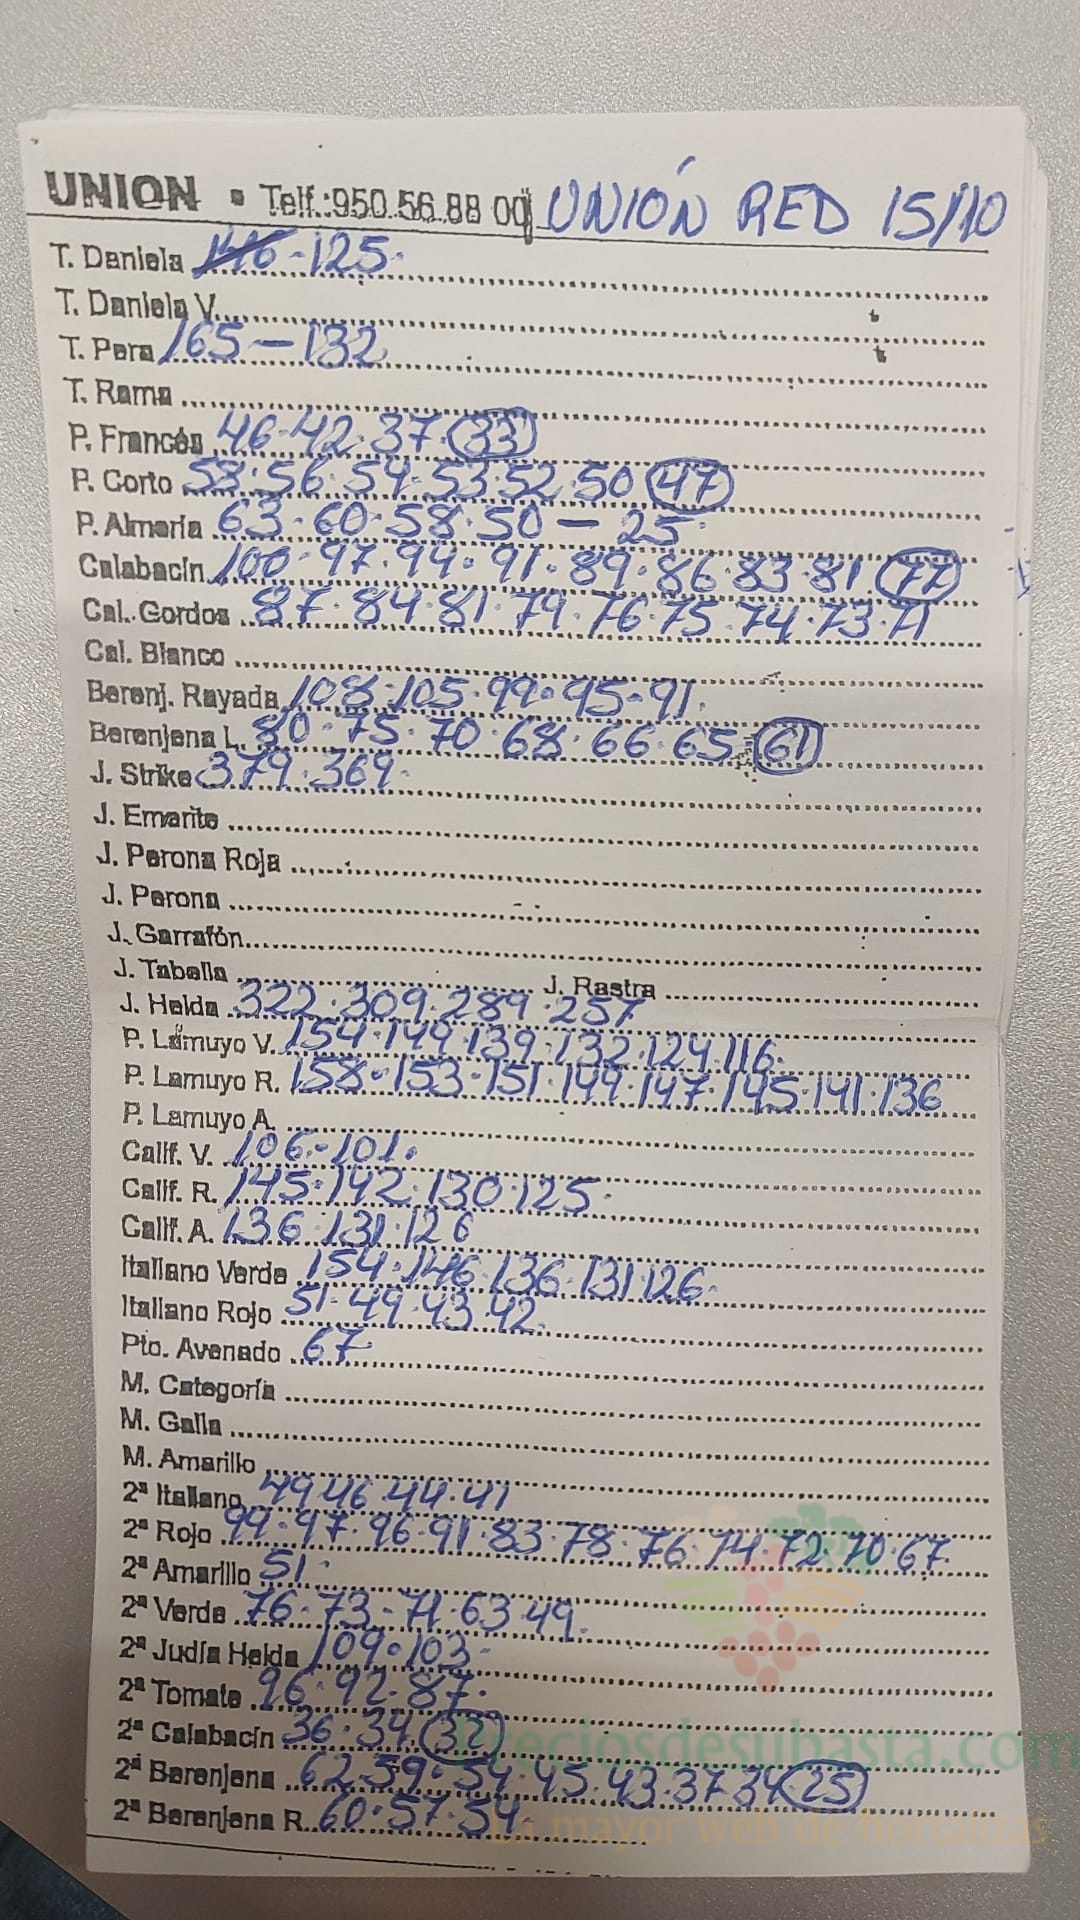 UNION • Telf.:950 56 88 00 UNIÓN RED 15/10
T. Daniela 146-125.
T. Daniela V.
T. Pera 165-132
T. Rama
P. Francés 46-42.37.(33)
P. Corto 58.56.54.53.52.50 (47)
P. Almería 63.60.58.50-25
Calabacín 100.97.94.91.89.86.83.81.(77)
Cal. Gordos 87.84.81.79.76.75.74.73.71
Cal. Blanco
Berenj. Rayada 108.105.99.95-91.
Berenjena L. 80.75.70.68.66.65.(61)
J. Strike 379.369.
J. Emerite
J. Perona Roja
J. Perona
J. Garrafón
J. Tabella J. Rastra
J. Helda 322.309.289.257
P. Lamuyo V. 154.149.139.132.124.116.
P. Lamuyo R. 158-153.151.149.147.145.141.136
P. Lamuyo A.
Calif. V. 106.-101.
Calif. R. 145.142.130.125.
Calif. A. 136.131.126
Italiano Verde 154.146.136.131.126.
Italiano Rojo 51.49.43.42.
Pto. Avenado 67
M. Categoría
M. Galia
M. Amarillo
2ª Italiano 49.46.44.41
2ª Rojo 99.97.96.91.83.78.76.74.72.70.67.
2ª Amarillo 51.
2ª Verde 76.73-71.63.49.
2ª Judía Helda 109.103.
2ª Tomate 96.92.87.
2ª Calabacín 36.34.(32)
Preciosdesubasta.com
2ª Berenjena 62.59.54.45.43.37.34.(25)
2ª Berenjena R. 60.57.54.
La mayor web de hortalizas